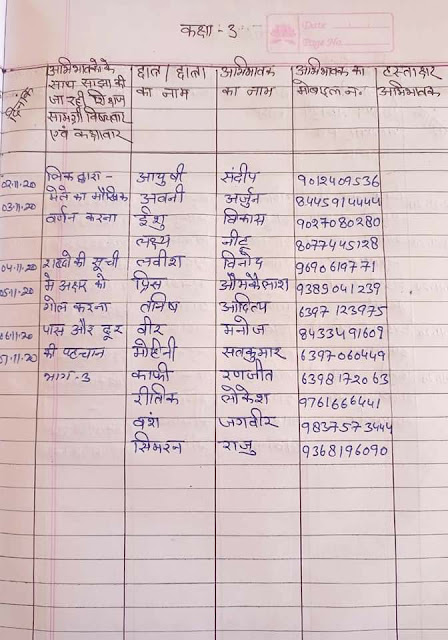 कक्षा - 3
Date
Page No.
दिनांक
अभिभावको के साथ साझा की जा रही शिक्षण सामग्री विषयवार एवं कक्षावार
छात्र / छात्रा का नाम
अभिभावक का नाम
अभिभावक का मोबाइल न०
हस्ताक्षर अभिभावक
चित्र द्वारा - आयुषी संदीप 9012409536
02-11-20 मेले का मौखिक अवनी अर्जुन 8445914444
03-11-20 वर्णन करना ईशु विकास 9027080280
लक्ष्य नीटू 8077445128
04-11-20 शब्दो की सूची लवीश विनोद 9690619771
05-11-20 मे अक्षर को प्रिंस ओमकैलाश 9389041239
गोल करना तनिष आदित्य 6397123975
06-11-20 पास और दूर वीर मनोज 8433491609
07-11-20 की पहचान मोहिनी सतकुमार 6397060449
भाग-3 काफी रणजीत 6398172063
रीतिक लोकेश 9761666441
वंश जगवीर 9837573444
सिमरन राजु 9368196090